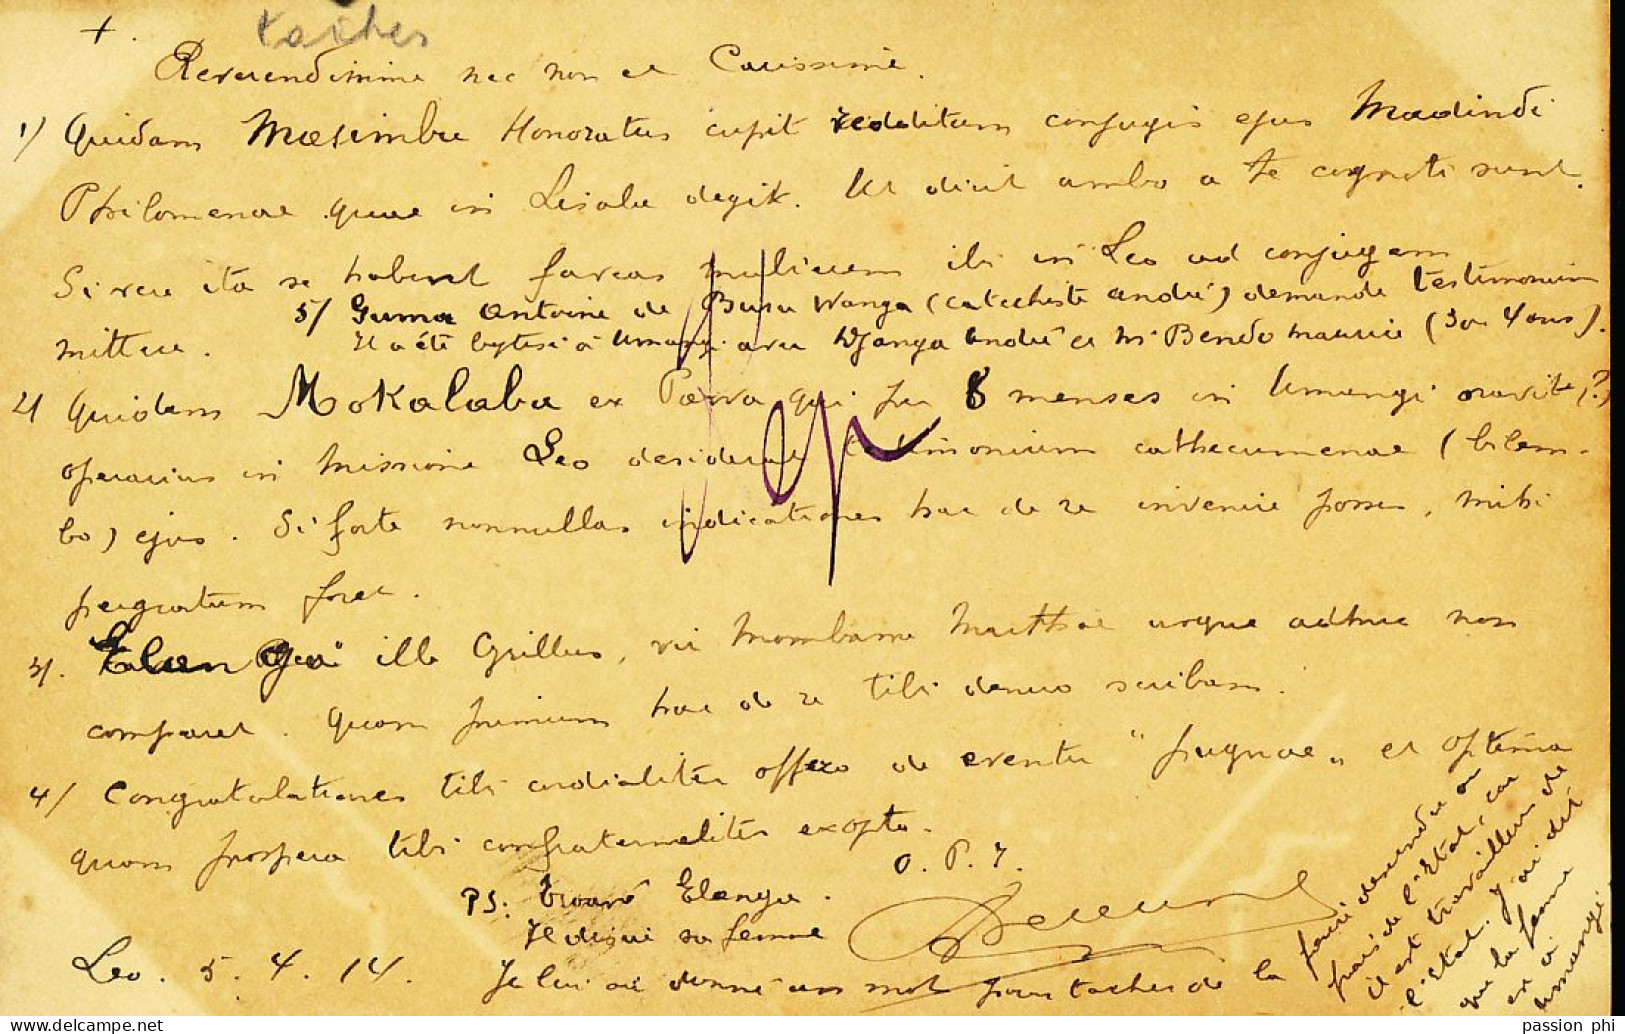 +.
tacher
Reverendissime nec non et Carissime.
1) Quidam Masimbu Honoratus cupit redditum conjugis ejus Madindi
Philomenae quae in Lisala degit. Ut dicit ambo a te cogniti sunt.
Si res ita se habent faveas mulierem ibi in Leo ad conjugem
mittere.
5/ Guma Antoine de Busu Wanga (catechiste André) demande testimonium
Il a été baptisé à Umangi avec Djanga André et Bendo Maurice (3 ou 4 ans).
2) Quidam Mokalaba ex Parva qui per 8 menses in Umangi oravit (?)
operarius in missione Leo desiderat testimonium cathecumenae (bilem-
bo) ejus. Si forte nonnullas indicationes hac de re invenire posses, mihi
pergratum foret.
3). Elenga ille Grillus, vir Mombama Matthae usque adhuc non
comparet. Quam primum hac de re tibi denuo scribam.
4/ Congratulationes tibi cordialiter offero de eventu "pugnae" et optima
quam prospera tibi confraternaliter exopto.
O. P. J.
PS: Trouvé Elenga.
Il désire sa femme
Leo. 5. 4. 14. Je lui ai donné un mot pour tacher de la faire descendre aux
frais de l'Etat, car
il est travailleur de
l'Etat. J'ai dit
que la femme
est à
Umangi
passion phi